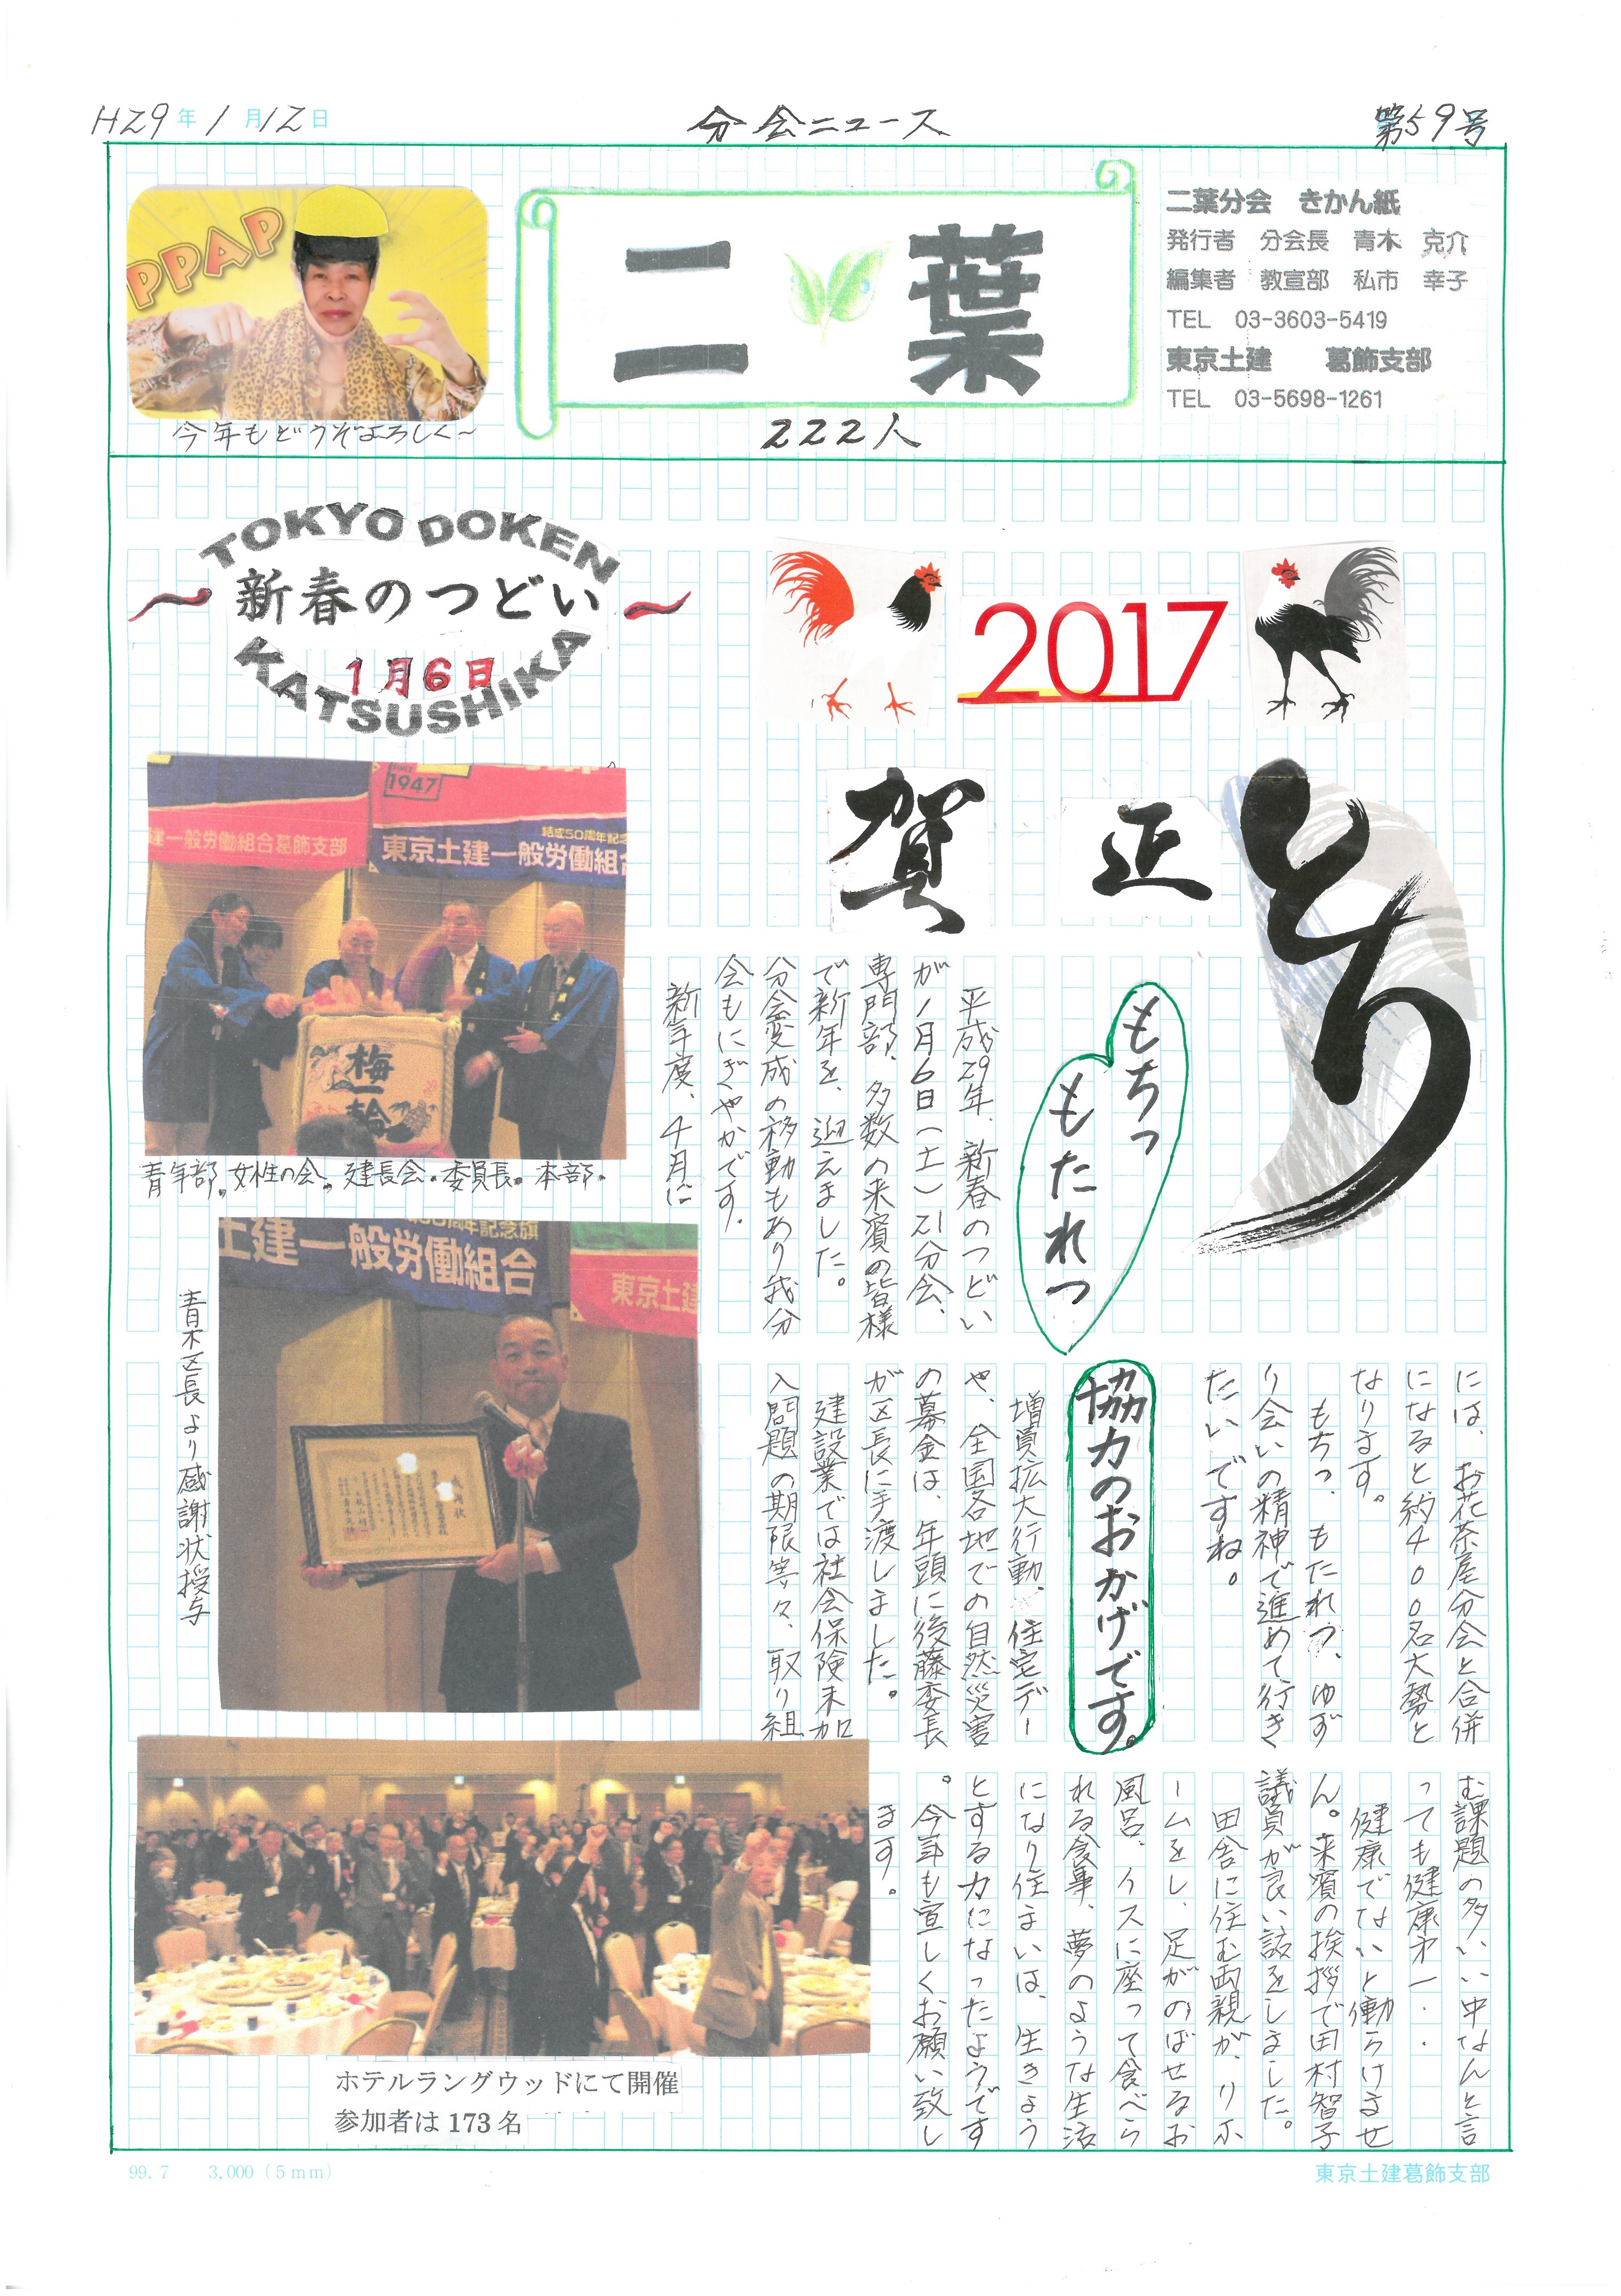 H29年1月12日
分会ニュース
第59号
PPAP
今年もどうぞよろしく~
二葉
222人
二葉分会 きかん紙
発行者 分会長 青木 克介
編集者 教宣部 私市 幸子
TEL 03-3603-5419
東京土建 葛飾支部
TEL 03-5698-1261
TOKYO DOKEN
~新春のつどい~
1月6日
KATSUSHIKA
2017
とり
正
賀
もちつ
もたれつ
平成29年、新春のつどい
が1月6日(土)21分会、
専門部、多数の来賓の皆様
で新年を、迎えました。
分会変成の移動もあり我分
会もにぎやかです。
新年度、4月に
には、お花茶屋分会と合併
になると約400名大勢と
なります。
もちつ、もたれつ、ゆず
り会いの精神で進めて行き
たいですね。
協力のおかげです。
増員拡大行動、住宅デー
や、全国各地での自然災害
の募金は、年頭に後藤委長
が区長に手渡しました。
建設業では社会保険未加
入問題の期限等々、取り組
む課題の多いい中なんと言
っても健康才一・・
健康でないと働らけませ
ん。来賓の挨拶で田村智子
議員が良い話をしました。
田舎に住む両親が、リホ
ームをし、足がのばせるお
風呂、イスに座って食べら
れる食事、夢のような生活
になり住まいは、生きよう
とする力になったようです
。今年も宜しくお願い致し
ます。
1947
建一般労働組合葛飾支部
結成50周年記念
東京土建一般労働組合
梅一輪
青年部。女性の会。建長会。委員長。本部。
50周年記念旗
土建一般労働組合
東京土建
感謝状
青木区長より感謝状授与
ホテルラングウッドにて開催
参加者は173名
99.7 3,000(5mm)
東京土建葛飾支部